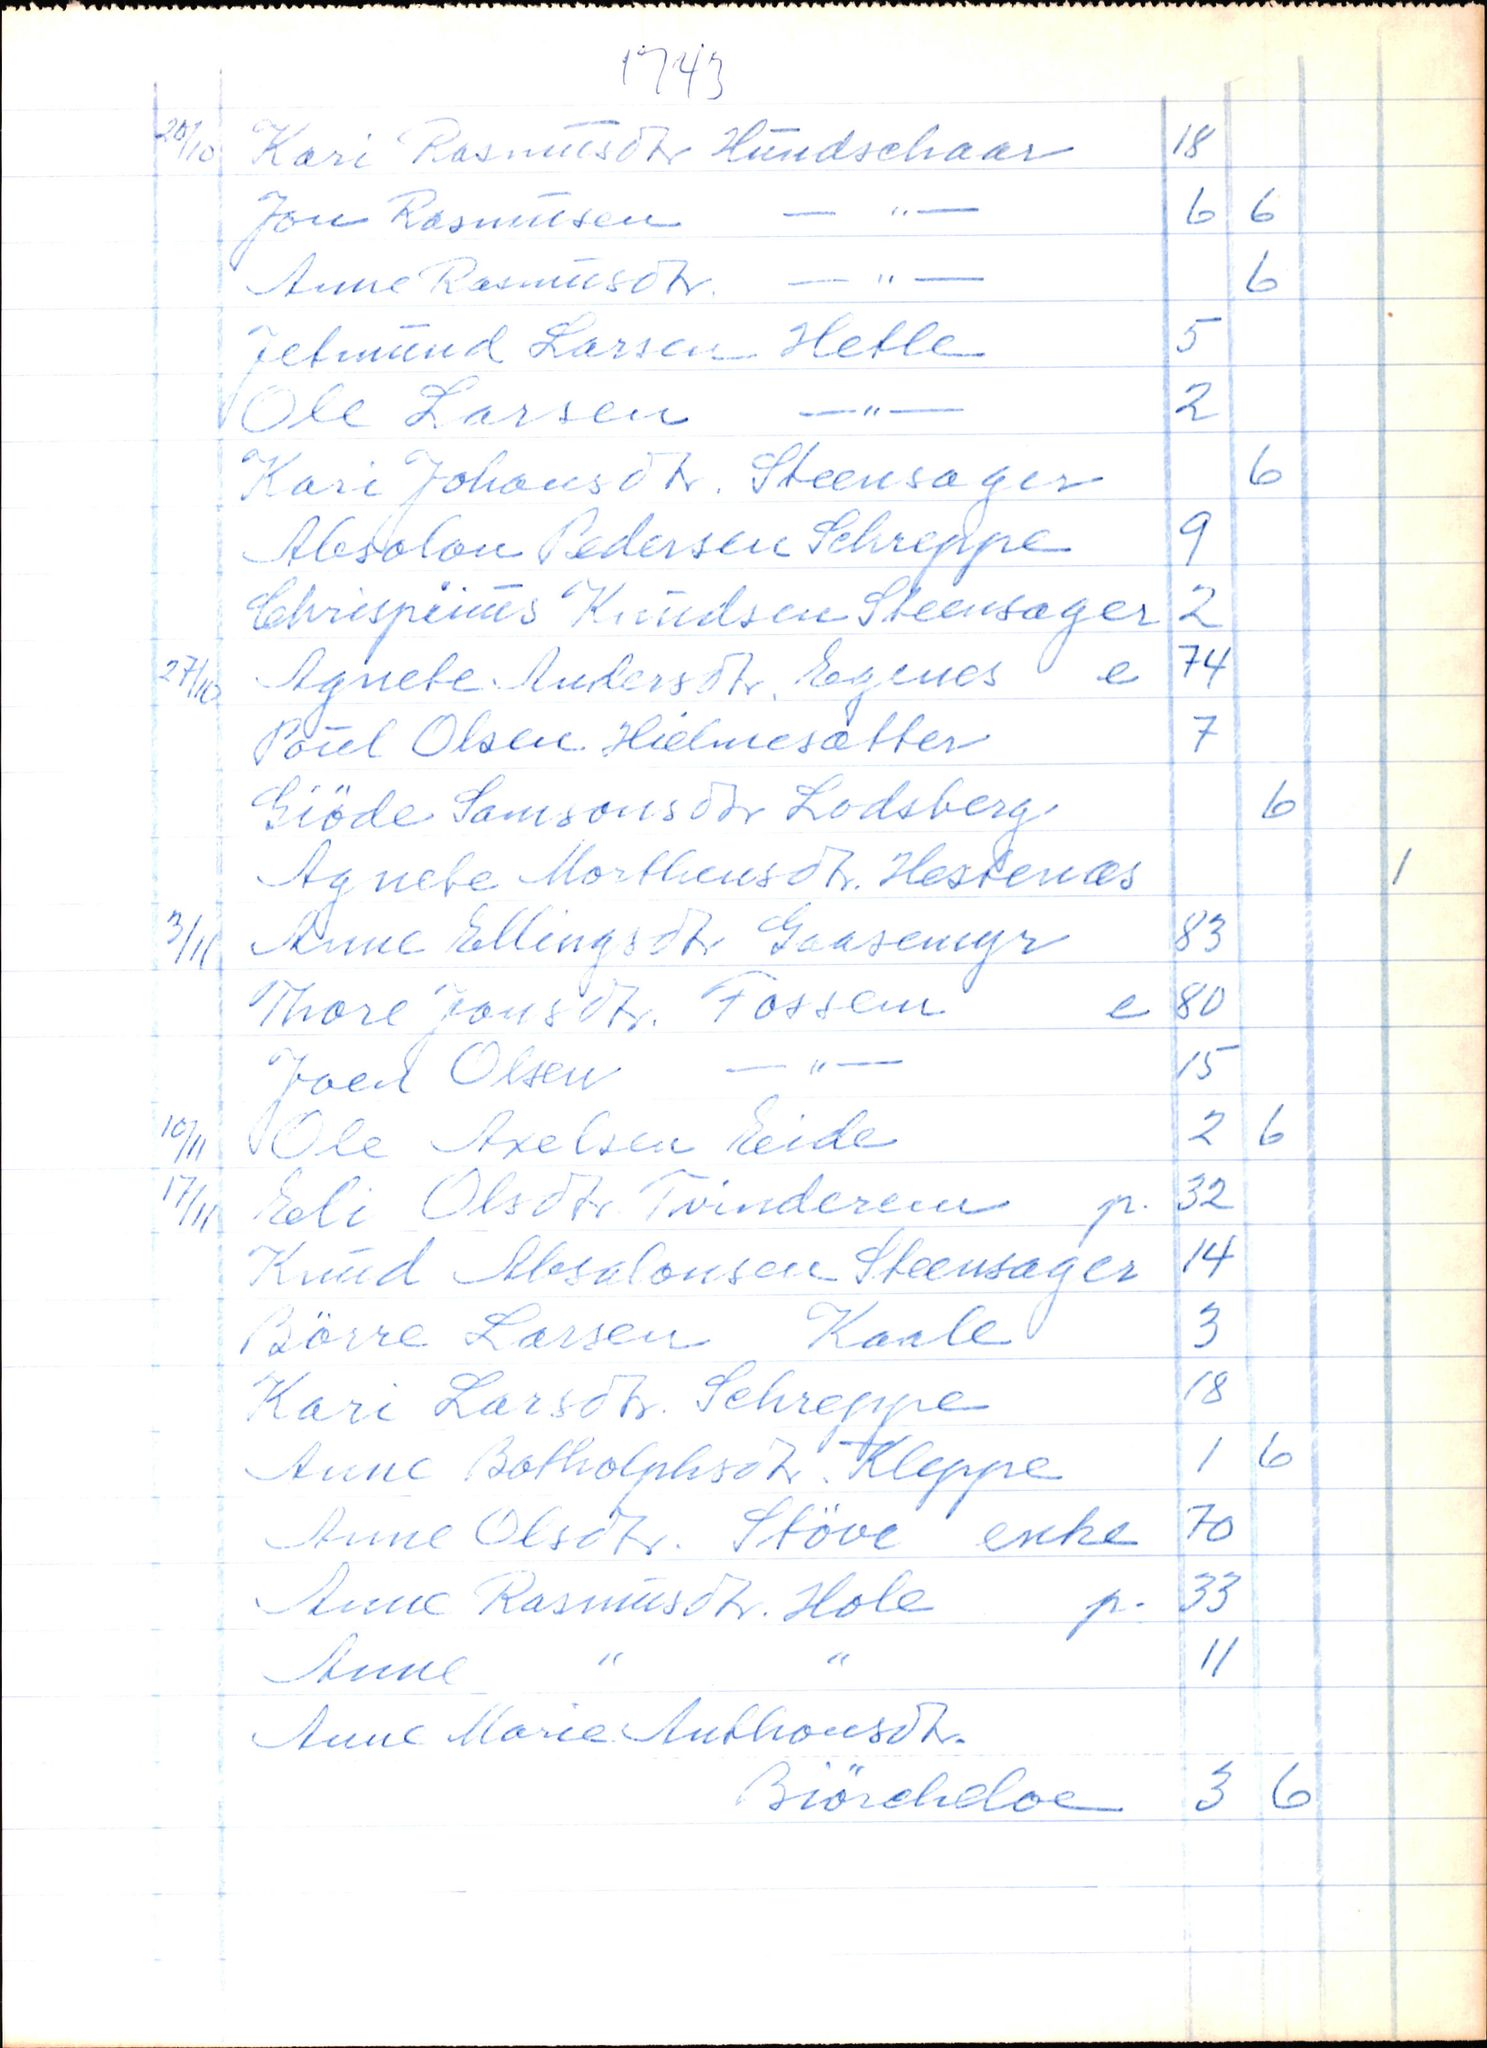 1743
20/10 Kari Rasmusdtr Hundschaar 18
Jon Rasmusen — " — 6 6
Anne Rasmusdtr. — " — 6
Jetmund Larsen Hetle 5
Ole Larsen — " — 2
Kari Johansdtr. Steensager 6
Absolon Pedersen Schreppe 9
Chrispinus Knudsen Steensager 2
27/10 Agnete Andersdtr. Egenes e 74
Poul Olsen Hielmesætter 7
Giöde Samsonsdtr Lodsberg 6
Agnete Morthensdtr. Hestenæs 1
3/11 Anne Ellingsdtr Gaasemyr 83
Thore Jonsdtr. Fossem e 80
Joen Olsen — " — 15
10/11 Ole Axelsen Eide 2 6
17/11 Eli Olsdtr. Tvinderem p. 32
Knud Absalonsen Steensager 14
Börre Larsen Kaale 3
Kari Larsdtr. Schreppe 18
Anne Botholphsdtr. Kleppe 1 6
Anne Olsdtr. Stöve enke 70
Anne Rasmusdtr. Hole p. 33
Anne " " 11
Anne Marie Anthonsdtr.
Biörcheloe 3 6